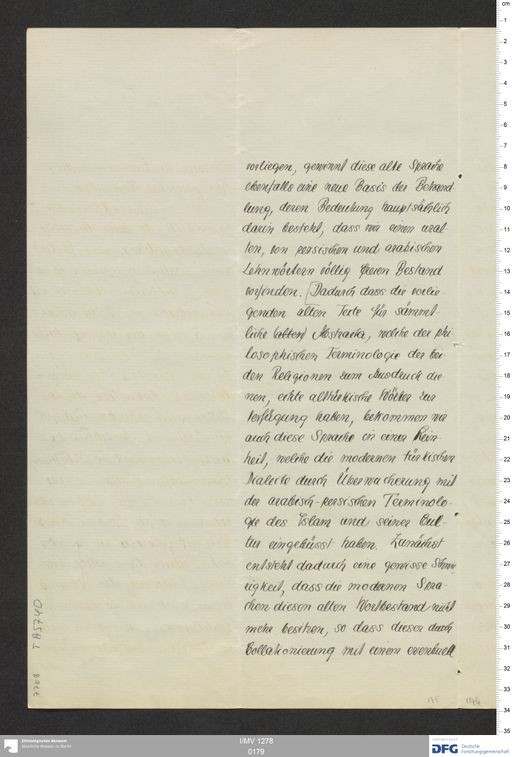 vorliegen, gewinnt diese alte Sprache
ebenfalls eine neue Basis der Behand-
lung, deren Bedeutung hauptsächlich
darin besteht, dass wir einen ural-
ten, von persischen und arabischen
Lehnwörtern völlig freien Bestand
vorfinden. [Dadurch dass die vorlie-
genden alten Texte für sämmt-
liche (alten) Abstracta, welche der phi-
losophischen Terminologie der bei-
den Religionen zum Ausdruck die-
nen, echte alttürkische Wörter zur
Verfügung haben, bekommen wir
auch diese Sprache in einer Rein-
heit, welche die modernen türkischen
Dialecte durch Überwucherung mit
der arabisch-persischen Terminolo-
gie des Islam und seiner Cul-
tur eingebüsst haben. Zunächst
entsteht dadurch eine gewisse Schwie-
rigkeit, dass die modernen Spra-
chen diesen alten Wortbestand nicht
mehr besitzen, so dass dieser durch
Collationierung mit einem eventuell
TA5740
175
Ethnologisches Museum
Staatliche Museen zu Berlin
I/MV 1278
0179
DFG Deutsche
Forschungsgemeinschaft
cm
1
2
3
4
5
6
7
8
9
10
11
12
13
14
15
16
17
18
19
20
21
22
23
24
25
26
27
28
29
30
31
32
33
34
35